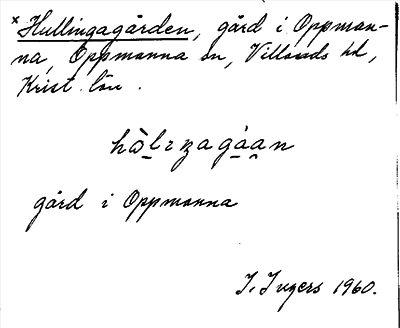 × Hullingagården, gård i Oppman-
na, Oppmanna sn, Villands hd,
Krist. län.
gård i Oppmanna
I. Ingers 1960.